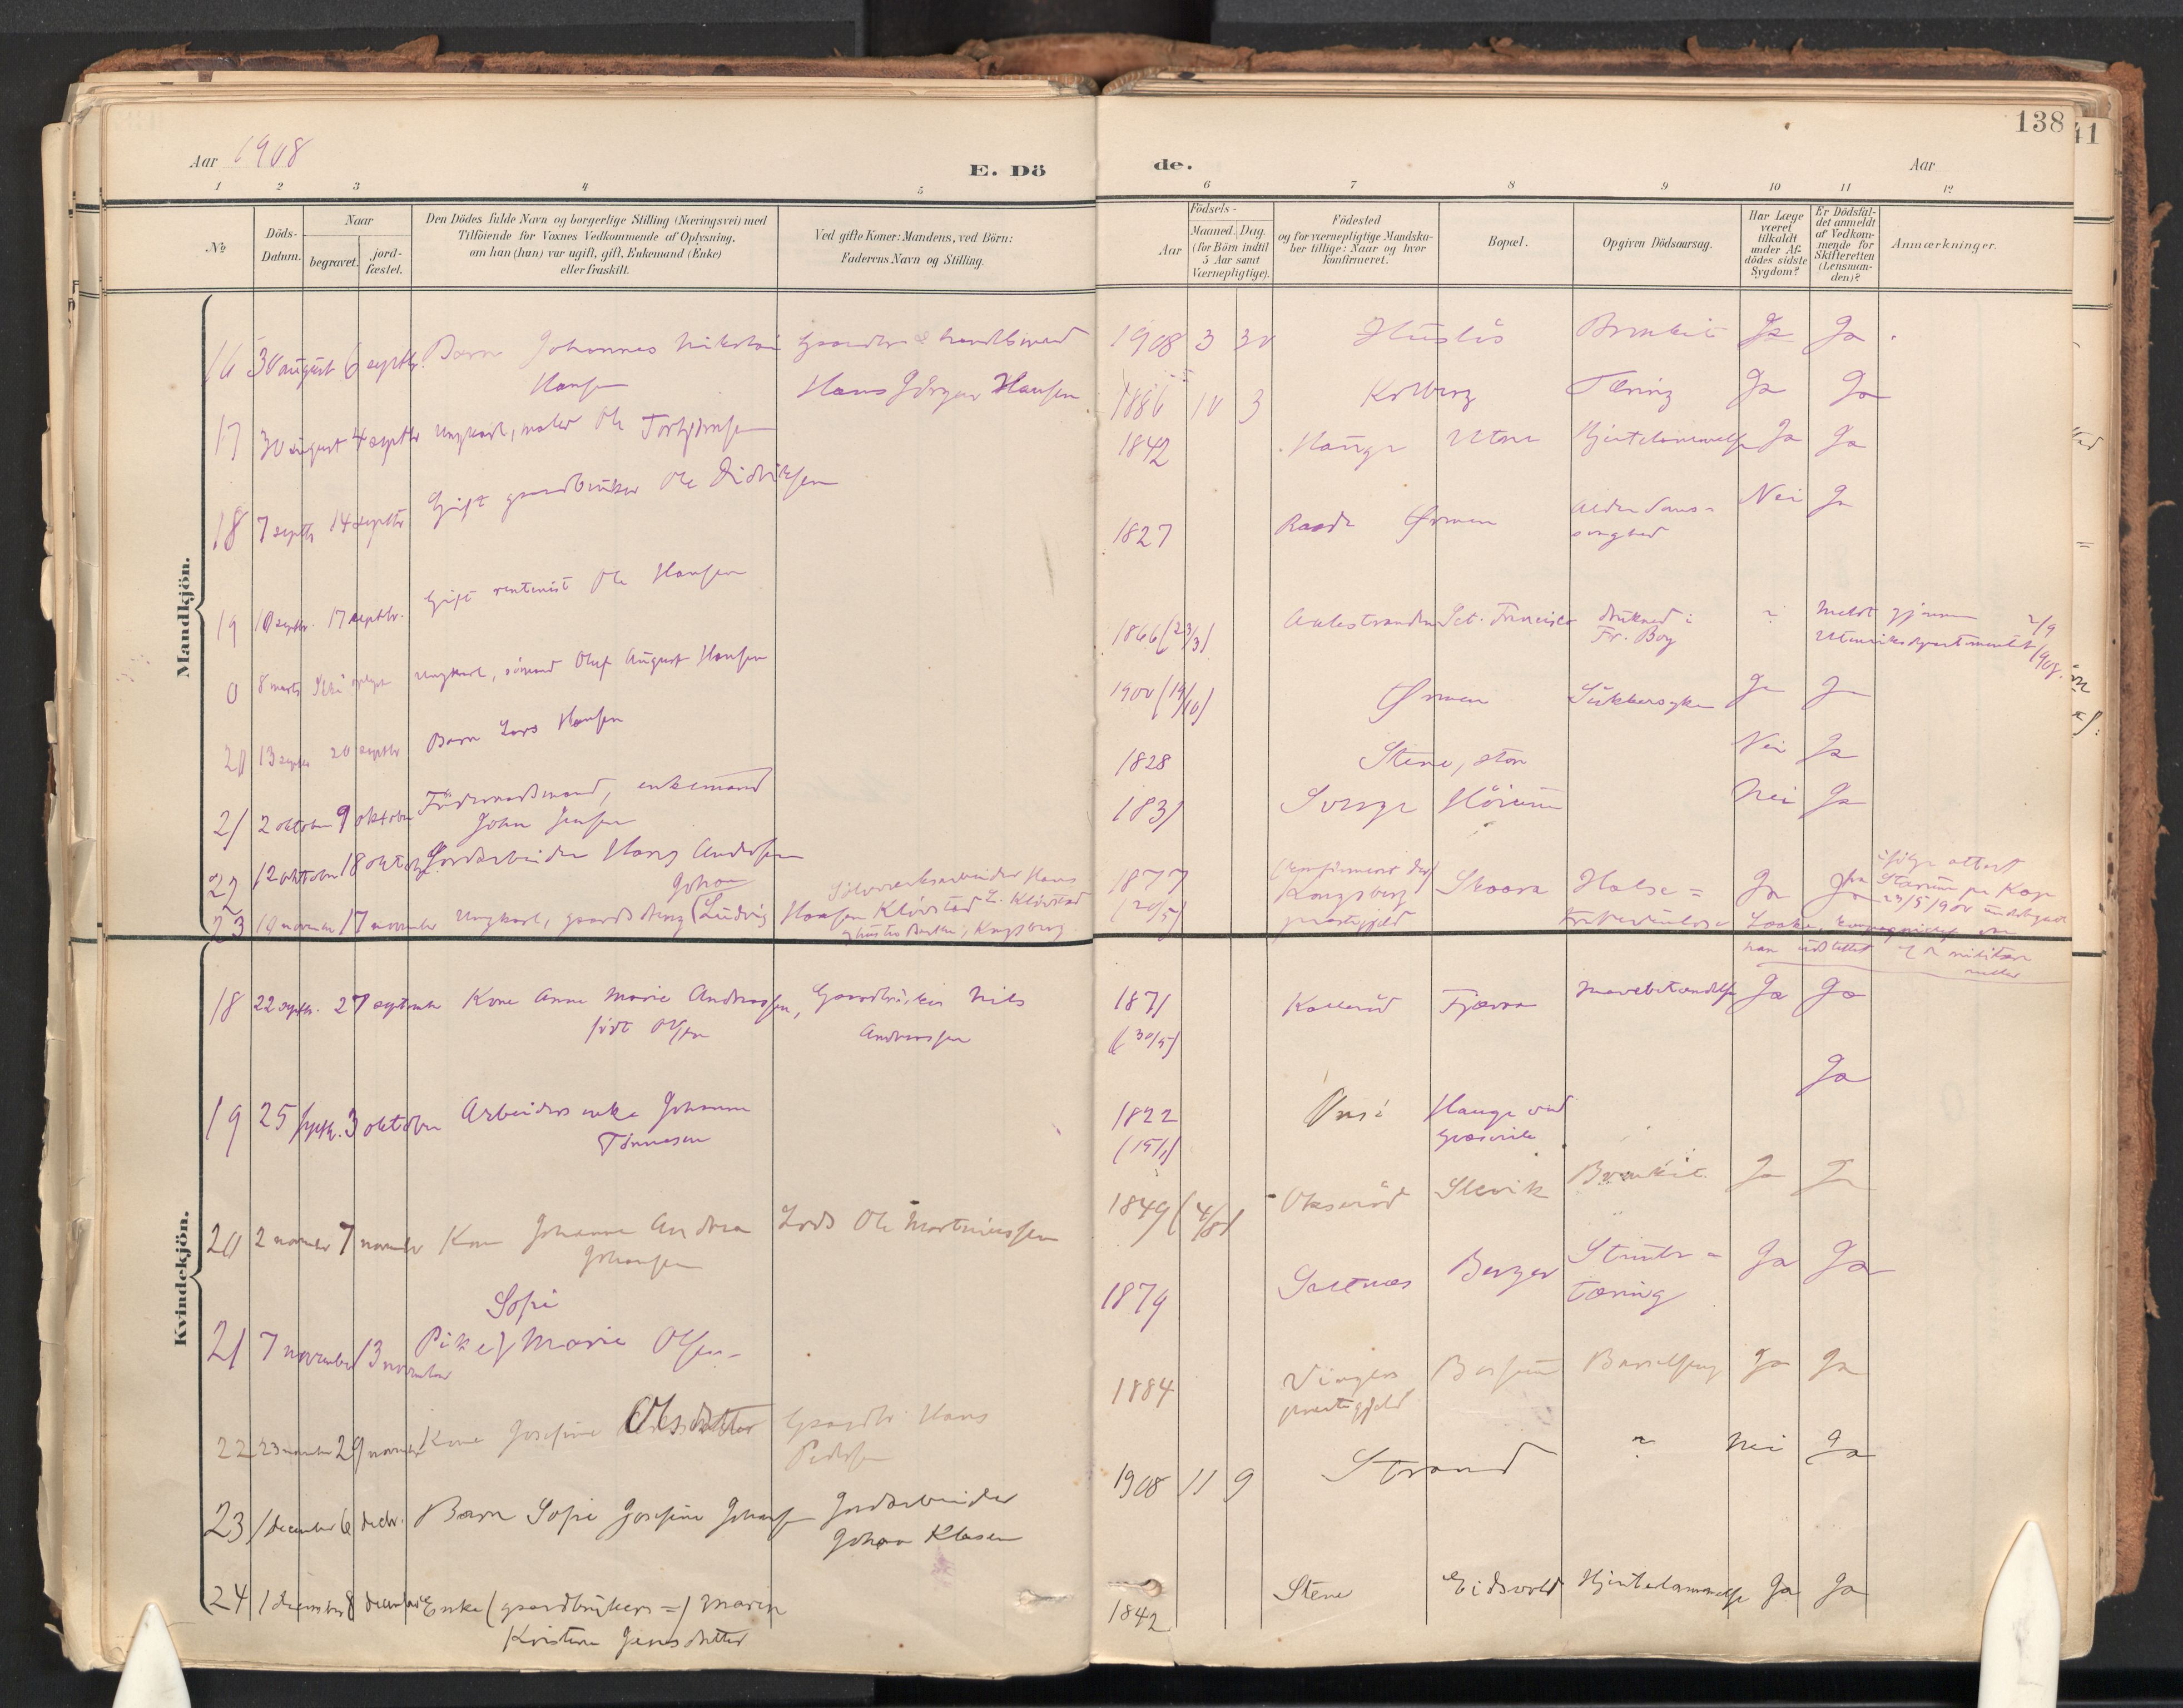 138
41
Aar 1908
E. Dö
de.
Aar
1 2 3 4 5 6 7 8 9 10 11 12
No
Döds-
Datum.
Naar
begravet.
jord-
fæstet.
Den Dödes fulde Navn og borgerlige Stilling (Næringsvei) med
Tilföiende for Voxnes Vedkommende af Oplysning,
om han (hun) var ugift, gift, Enkemand (Enke)
eller fraskilt.
Ved gifte Koner: Mandens, ved Börn:
Faderens Navn og Stilling.
Födsels-
Aar
Maaned. Dag.
(for Börn indtil
5 Aar samt
Værnepligtige).
Födested
og for værnepligtige Mandska-
ber tillige: Naar og hvor
konfirmeret.
Bopæl.
Opgiven Dödsaarsag.
Har Læge
været
tilkaldt
under Af-
dödes sidste
Sygdom?
Er Dödsfal-
det anmeldt
af Vedkom-
mende for
Skifteretten
(Lensman-
den)?
Anmærkninger.
Mandkjön.
16 30 august 6 septbr. Barn Johannes Nikolai
Hansen
Hans Jörgen Hansen
1908 3 30 Huslös Bronkit Ja Ja
17 30 august 4 septbr ungkarl, maler Ole Torbjörnsen
1886 10 3 Kolberg Tæring Ja Ja
18 7 septbr 14 septbr Gift gaardbruker Ole Didriksen
1842 Hauge Utne Hjertelammelse Ja Ja
19 10 septbr. 17 septbr. Gift rentenist Ole Hansen
1827 Raade Örmen Nei Ja
0 8 marts ungkarl, sömand Oluf August Hansen
1866 (23/3) Sct. Francisco druknet i
Fr. Bay
? Meldt gjennem
Utenriksdepartementet 2/9 1908.
20 13 septbr 20 septbr Barn Lars Hansen
1900 (19/10) Örmen Sukkersyke Ja Ja
21 2 oktober 9 oktober Föderaadsmand, enkemand
John Jensen
1828 Stene, Nei Ja
22 12 oktober 18 oktober Jordarbeider Hans Andersen
1831 Sverge Höium Nei Ja
23 10 november 17 november ungkarl, gaardsdreng (Johan
Ludvig
Sölvverksarbeider Hans
Hansen Klövstad L. Klövstad
Kongsberg
1877
(20/5)
Kongsberg
prestegjeld
Skaara Halse =
Ja Ja
ifölge attest
fra
23/5 1900
han
militære
ruller
Kvindekjön.
18 22 septbr. 27 september Kone Anne Marie Andreassen,
födt Olsen
Gaardbruker Nils
Andreassen
1871
(30/5)
Kallerud Fjæraa Mavebetændelse Ja Ja
19 25 septbr. 3 oktober Arbeiders enke Johanne
Tönnesen
1822
(15/1)
Onsö Hauge ved
Ja
20 2 november 7 november Kone Johanne Andrea
Johansen
Lods Ole Martiniussen
1849 (4/8) Okseröd Slevik Bronkit. Ja Ja
21 7 november 13 november
Pike } Sofie
Marie Olsen
1879 Saltnæs Berger Strube =
tæring
Ja Ja
22 23 november 29 november Kone Josefine Olsdatter
Gaardbr. Hans
Pedersen
1884 Vinger
prestegjeld
Barselseng Ja Ja
23 1 december 6 decbr. Barn Sofie Josefine Johansen
Jordarbeider
Johan Klasen
1908 11 9 Strand ? Nei Ja
24 1 december 8 december Enke (gaardbrukers =) Maren
Kristine Jensdatter
1842 Stene Eidsvold Hjertelammelse Ja Ja